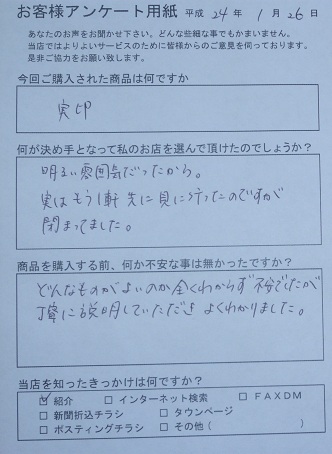 お客様アンケート用紙 平成 24 年 1 月 26 日
あなたのお声をお聞かせ下さい。どんな些細な事でもかまいません。
当店ではよりよいサービスのために皆様からのご意見を伺っております。
是非ご協力をお願い致します。
今回ご購入された商品は何ですか
実印
何が決め手となって私のお店を選んで頂けたのでしょうか?
明るい雰囲気だったから。
実はもう1軒 先に見に行ったのですが
閉まってました。
商品を購入する前、何か不安な事は無かったですか?
どんなものがよいのか全くわからず 不安でしたが
丁寧に説明していただき よくわかりました。
当店を知ったきっかけは何ですか?
☑ 紹介 □ インターネット検索 □ FAXDM
□ 新聞折込チラシ □ タウンページ
□ ポスティングチラシ □ その他 ( )